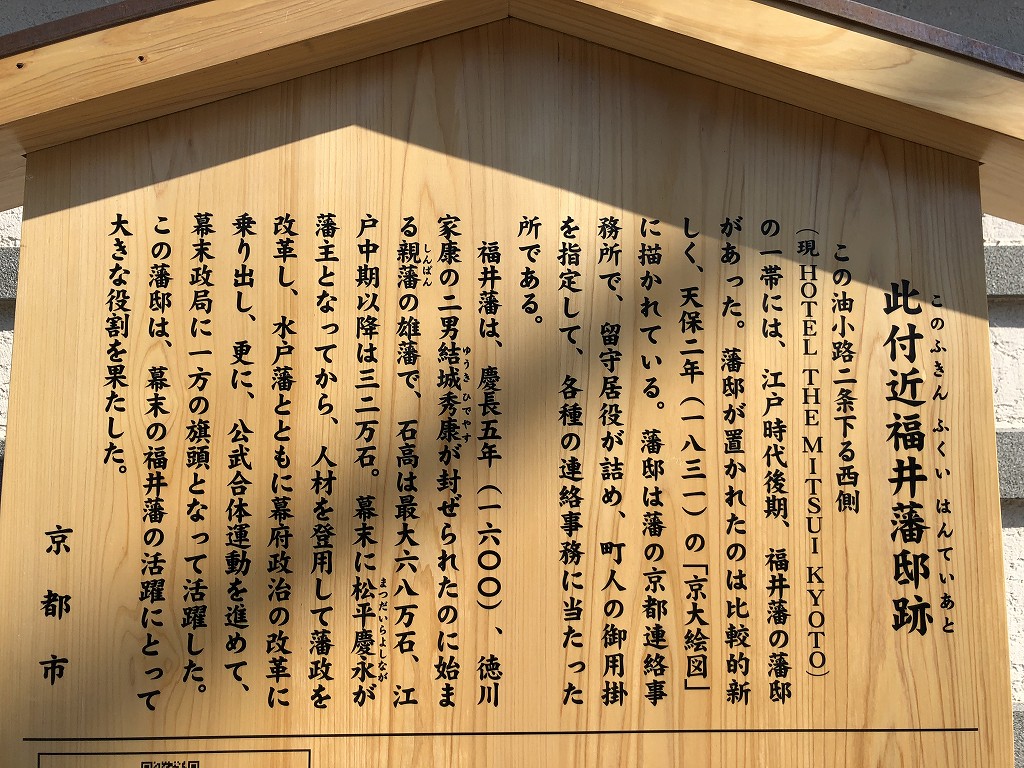 此付近福井藩邸跡
このふきん ふくい はんていあと
この油小路二条下る西側
(現HOTEL THE MITSUI KYOTO)
の一帯には、江戸時代後期、福井藩の藩邸
があった。藩邸が置かれたのは比較的新
しく、天保二年(一八三一)の「京大絵図」
に描かれている。藩邸は藩の京都連絡事
務所で、留守居役が詰め、町人の御用掛
を指定して、各種の連絡事務に当たった
所である。
福井藩は、慶長五年(一六〇〇)、徳川
家康の二男結城秀康が封ぜられたのに始ま
ゆうき ひでやす
る親藩の雄藩で、石高は最大六八万石、江
しんぱん
戸中期以降は三二万石。幕末に松平慶永が
まつだいらよしなが
藩主となってから、人材を登用して藩政を
改革し、水戸藩とともに幕府政治の改革に
乗り出し、更に、公武合体運動を進めて、
幕末政局に一方の旗頭となって活躍した。
この藩邸は、幕末の福井藩の活躍にとって
大きな役割を果たした。
京都市